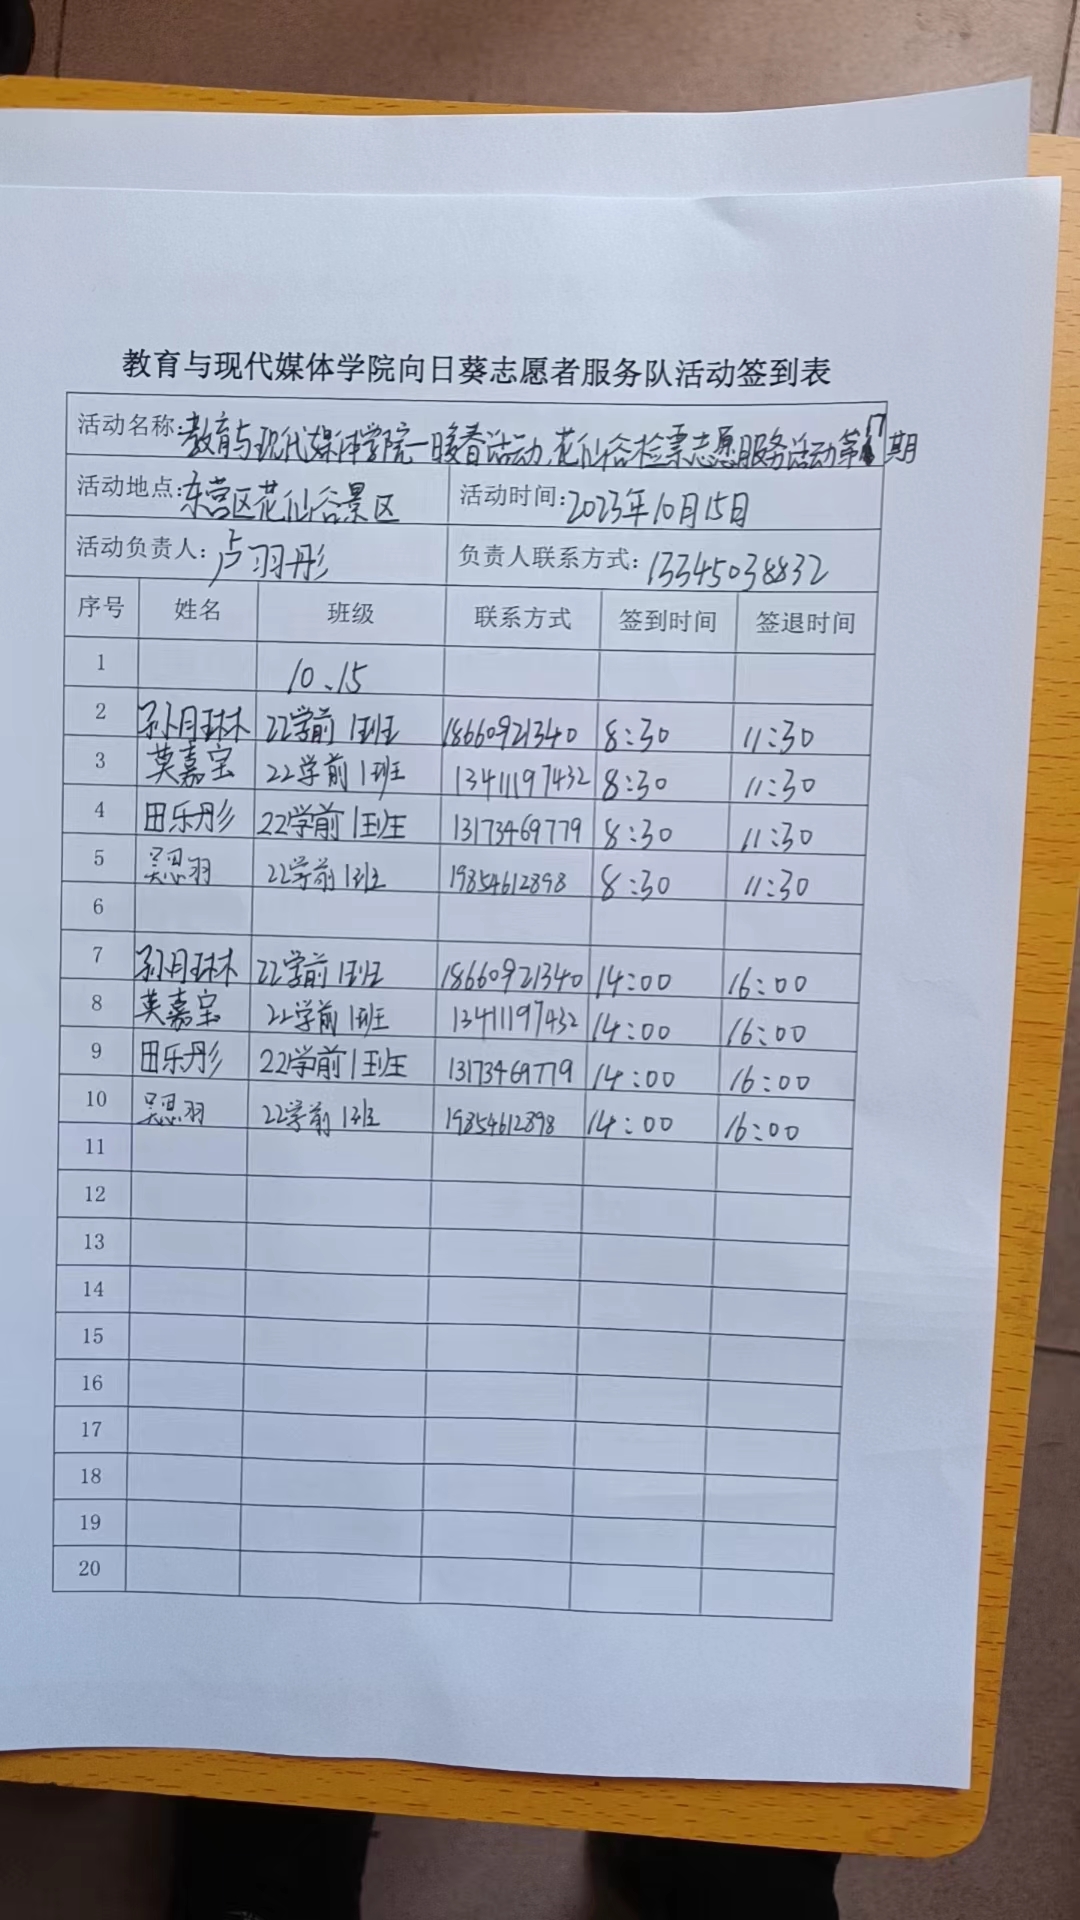 教育与现代媒体学院向日葵志愿者服务队活动签到表
活动名称:教育与现代媒体学院一暖春活动,花仙谷检票志愿服务活动第 期
活动地点:东营区花仙谷景区 活动时间:2023年10月15日
活动负责人:卢羽彤 负责人联系方式:13345038832
序号 姓名 班级 联系方式 签到时间 签退时间
1 10、15
2 孙月琳 22学前1班 18660921340 8:30 11:30
3 英嘉宝 22学前1班 13411197432 8:30 11:30
4 田乐彤 22学前1班 13173469779 8:30 11:30
5 吴思羽 22学前1班 19854612898 8:30 11:30
6
7 孙月琳 22学前1班 18660921340 14:00 16:00
8 英嘉宝 22学前1班 13411197432 14:00 16:00
9 田乐彤 22学前1班 13173469779 14:00 16:00
10 吴思羽 22学前1班 19854612898 14:00 16:00
11
12
13
14
15
16
17
18
19
20